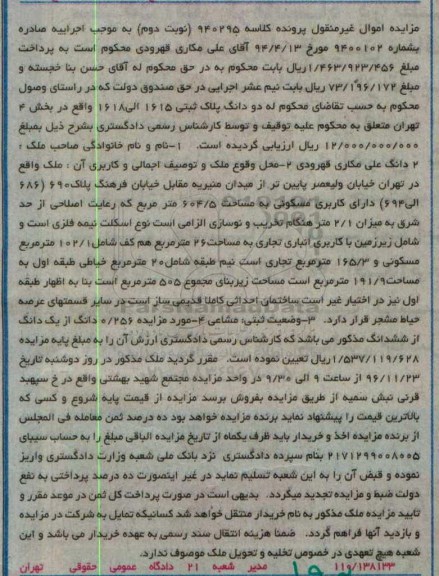 مزایده اموال غیرمنقول پرونده کلاسه ۹۴۰۲۹۵ (نوبت دوم) به موجب اجراییه صادره
بشماره ۹۴۰۰۱۰۲ مورخ ۹۴/۴/۱۳ آقای علی مکاری قهرودی محکوم است به پرداخت
مبلغ ۱/۴۶۳/۹۲۳/۴۵۶ریال بابت محکوم به در حق محکوم له آقای حسن بنا خجسته و
مبلغ ۷۳/۱۹۶/۱۷۲ ریال بابت نیم عشر اجرایی در حق صندوق دولت که در راستای وصول
محکوم به حسب تقاضای محکوم له دو دانگ پلاک ثبتی ۱۶۱۵ الی۱۶۱۸ واقع در بخش ۴
تهران متعلق به محکوم علیه توقیف و توسط کارشناس رسمی دادگستری بشرح ذیل بمبلغ
۱۲/۰۰۰/۰۰۰/۰۰۰ ریال ارزیابی گردیده است. ۱-نام و نام خانوادگی صاحب ملک :
۲ دانگ علی مکاری قهرودی ۲-محل وقوع ملک و توصیف اجمالی و کاربری آن : ملک واقع
در تهران خیابان ولیعصر پایین تر از میدان منیریه مقابل خیابان فرهنگ پلاک۶۹۰ (۶۸۶
الی۶۹۴) دارای کاربری مسکونی به مساحت ۶۰۴/۵ متر مربع که رعایت اصلاحی از حد
شرق به میزان ۲/۱ متر هنگام تخریب و نوسازی الزامی است نوع اسکلت نیمه فلزی است و
شامل زیرزمین با کاربری انباری تجاری به مساحت۲۶ مترمربع هم کف شامل۱۰۲/۱ مترمربع
مسکونی و ۱۶۵/۳ مترمربع تجاری است نیم طبقه شامل۲۰ مترمربع خیاطی طبقه اول به
مساحت۱۹۱/۹ مترمربع است مساحت زیربنای مجموع ۵۰۵ مترمربع است بنا به اظهار طبقه
اول نیز در اختیار غیر است ساختمان احداثی کاملا قدیمی ساز است در سایر قسمتهای عرصه
حیاط مشجر قرار دارد. ۳-وضعیت ثبتی: مشاعی ۴-مورد مزایده ۰/۲۵۶ دانگ از یک دانگ
از ششدانگ مذکور می باشد که کارشناس رسمی دادگستری ارزش آن را به مبلغ پایه مزایده
۱/۵۳۷/۱۱۹/۶۲۸ریال تعیین نموده است. مقرر گردید ملک مذکور در روز دوشنبه تاریخ
۹۶/۱۱/۲۳ از ساعت ۹ الی ۹/۳۰ در واحد مزایده مجتمع شهید بهشتی واقع در خ سپهبد
قرنی نبش سمیه از طریق مزایده بفروش برسد مزایده از قیمت پایه شروع و کسی که
بالاترین قیمت را پیشنهاد نماید برنده مزایده خواهد بود ده درصد ثمن معامله فی المجلس
از برنده مزایده اخذ و خریدار باید ظرف یکماه از تاریخ مزایده الباقی مبلغ را به حساب سیبای
۲۱۷۱۲۹۹۰۰۸۰۰۵ بنام سپرده دادگستری نزد بانک ملی شعبه وزارت دادگستری واریز
نموده و قبض آن را به این شعبه تسلیم نماید در غیر اینصورت ده درصد پرداختی به نفع
دولت ضبط و مزایده تجدید میگردد. بدیهی است در صورت پرداخت کل ثمن در موعد مقرر و
تایید مزایده ملک مذکور به نام خریدار منتقل خواهد شد کسانیکه تمایل به شرکت در مزایده
و بازدید آنها فراهم گردد. ضمنا هزینه انتقال سند رسمی به عهده خریدار می باشد و این
شعبه هیچ تعهدی در خصوص تخلیه و تحویل ملک موصوف ندارد.
۱۱۹/۱۳۸۱۳۳ مدیر شعبه ۲۱ دادگاه عمومی حقوقی تهران